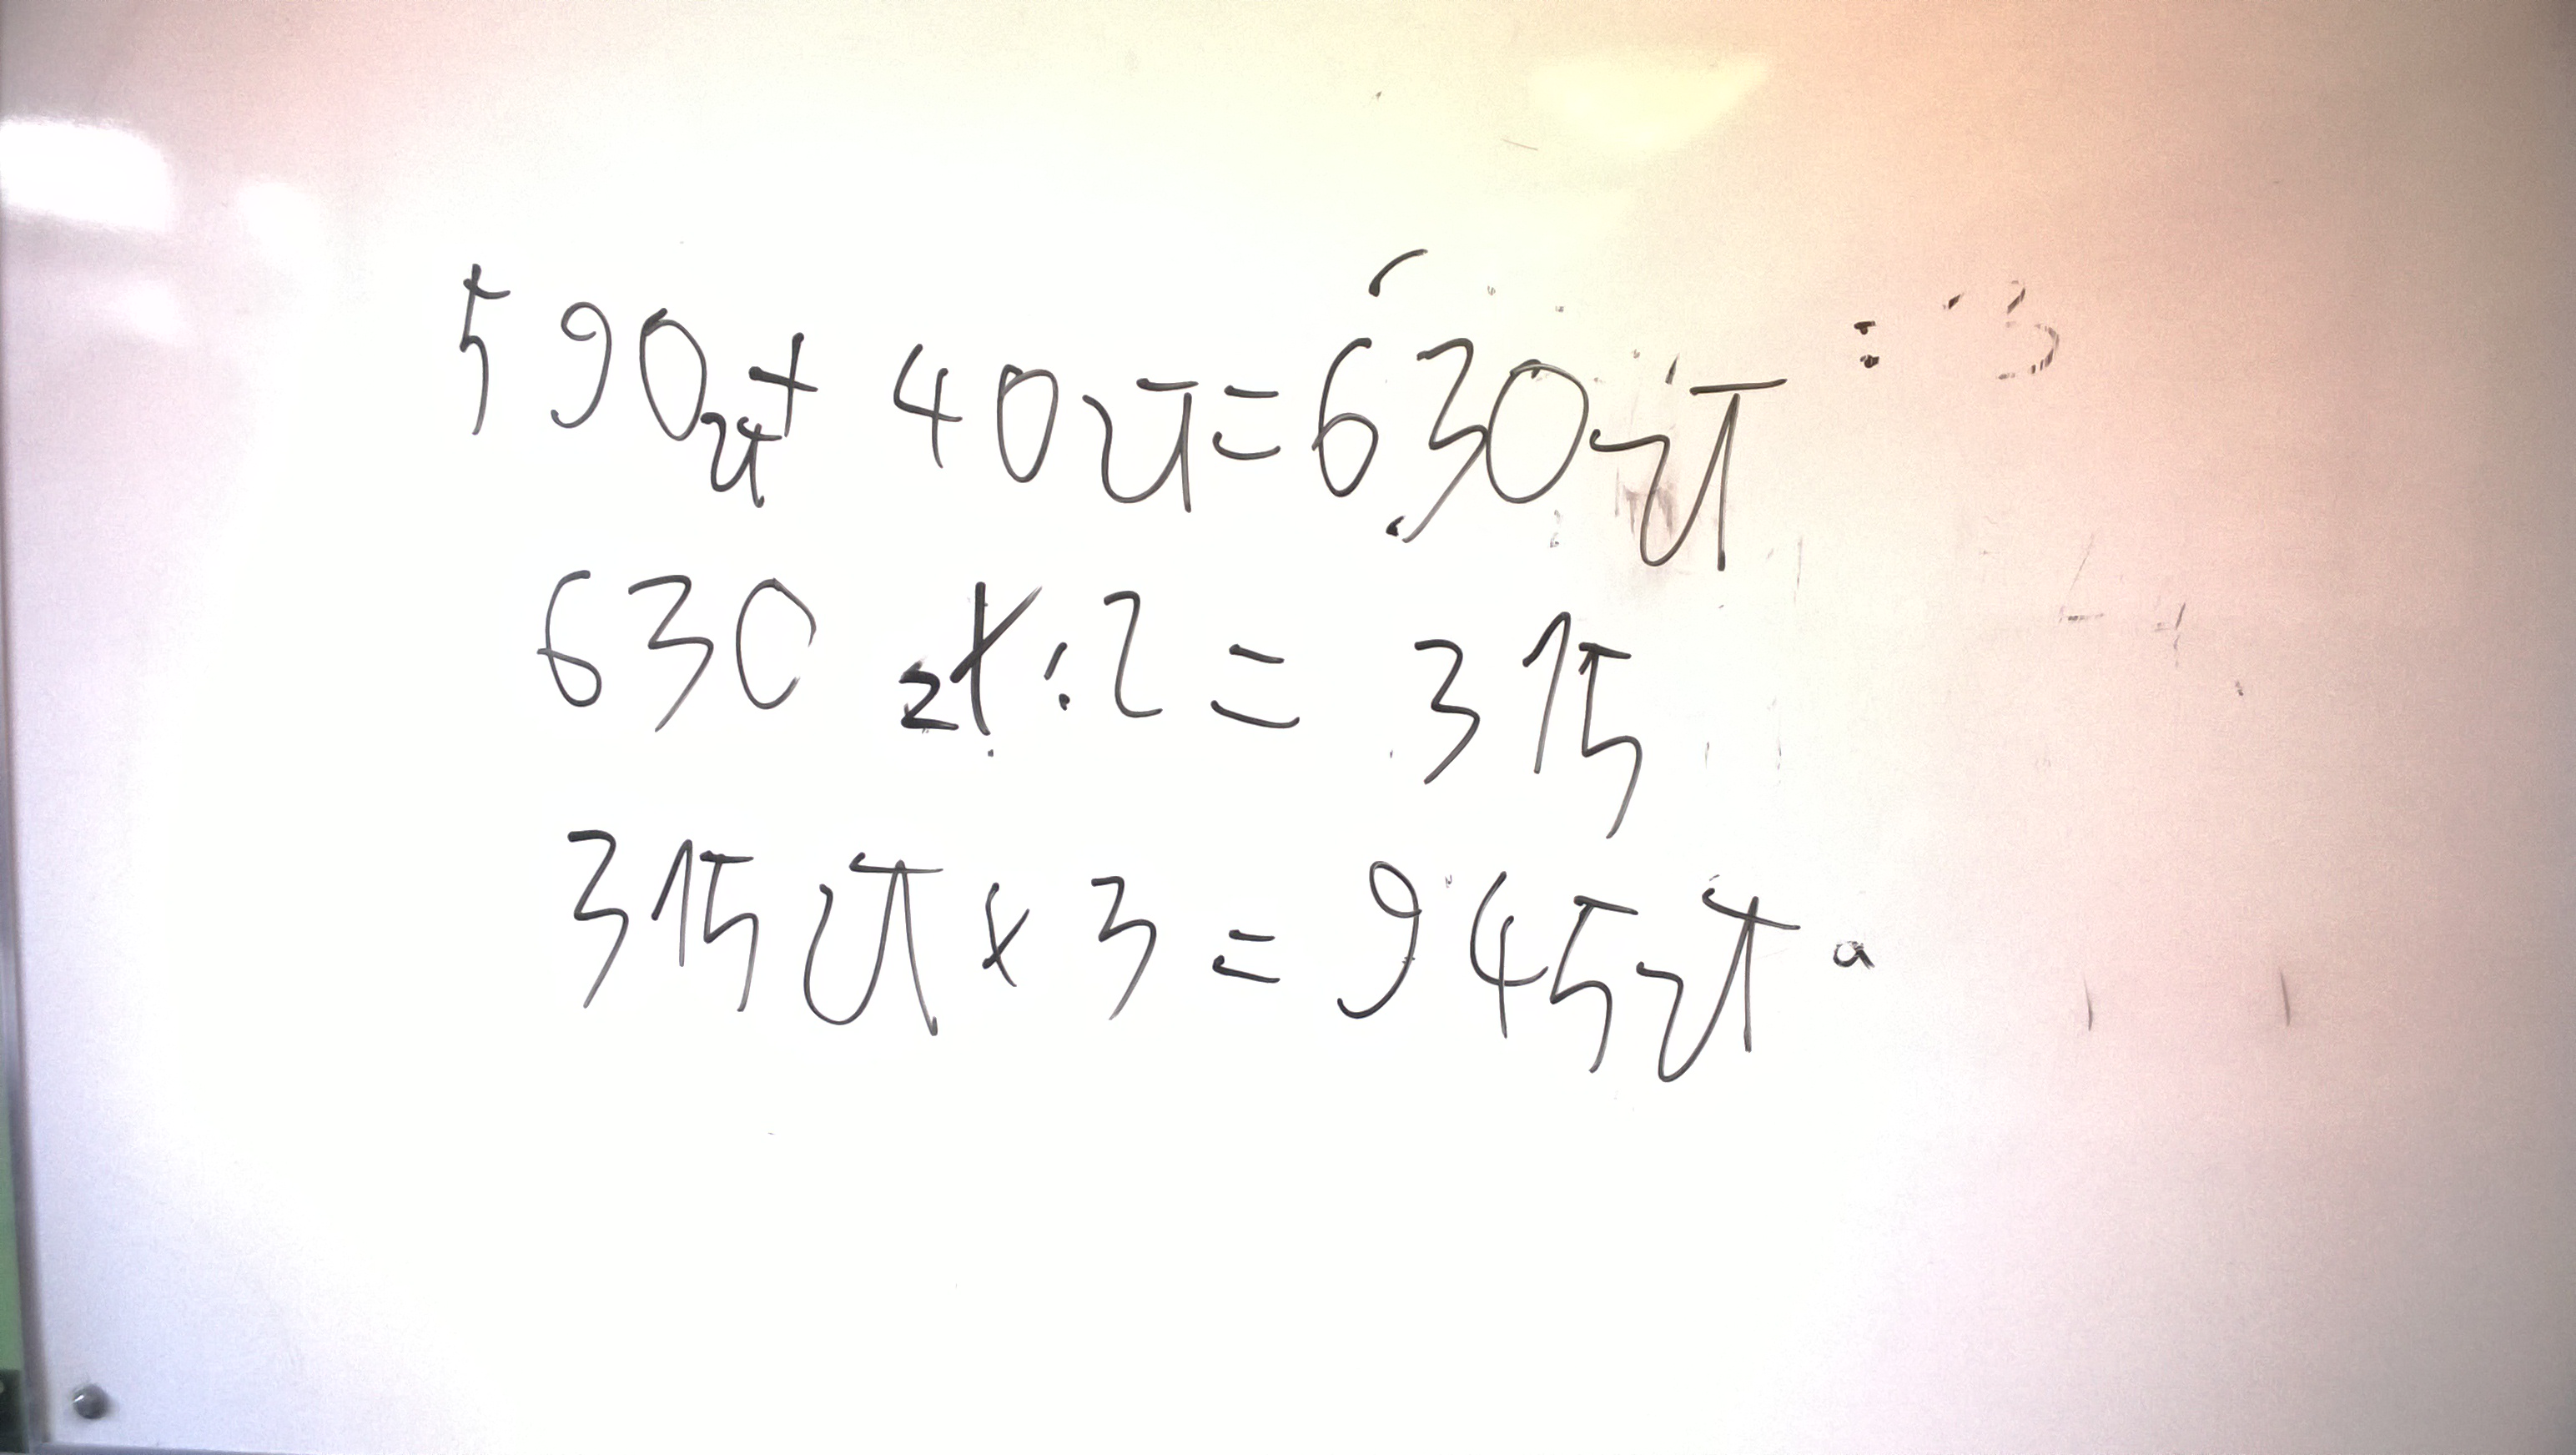 590zł + 40zł = 630zł
630 zł : 2 = 315
315zł x 3 = 945zł